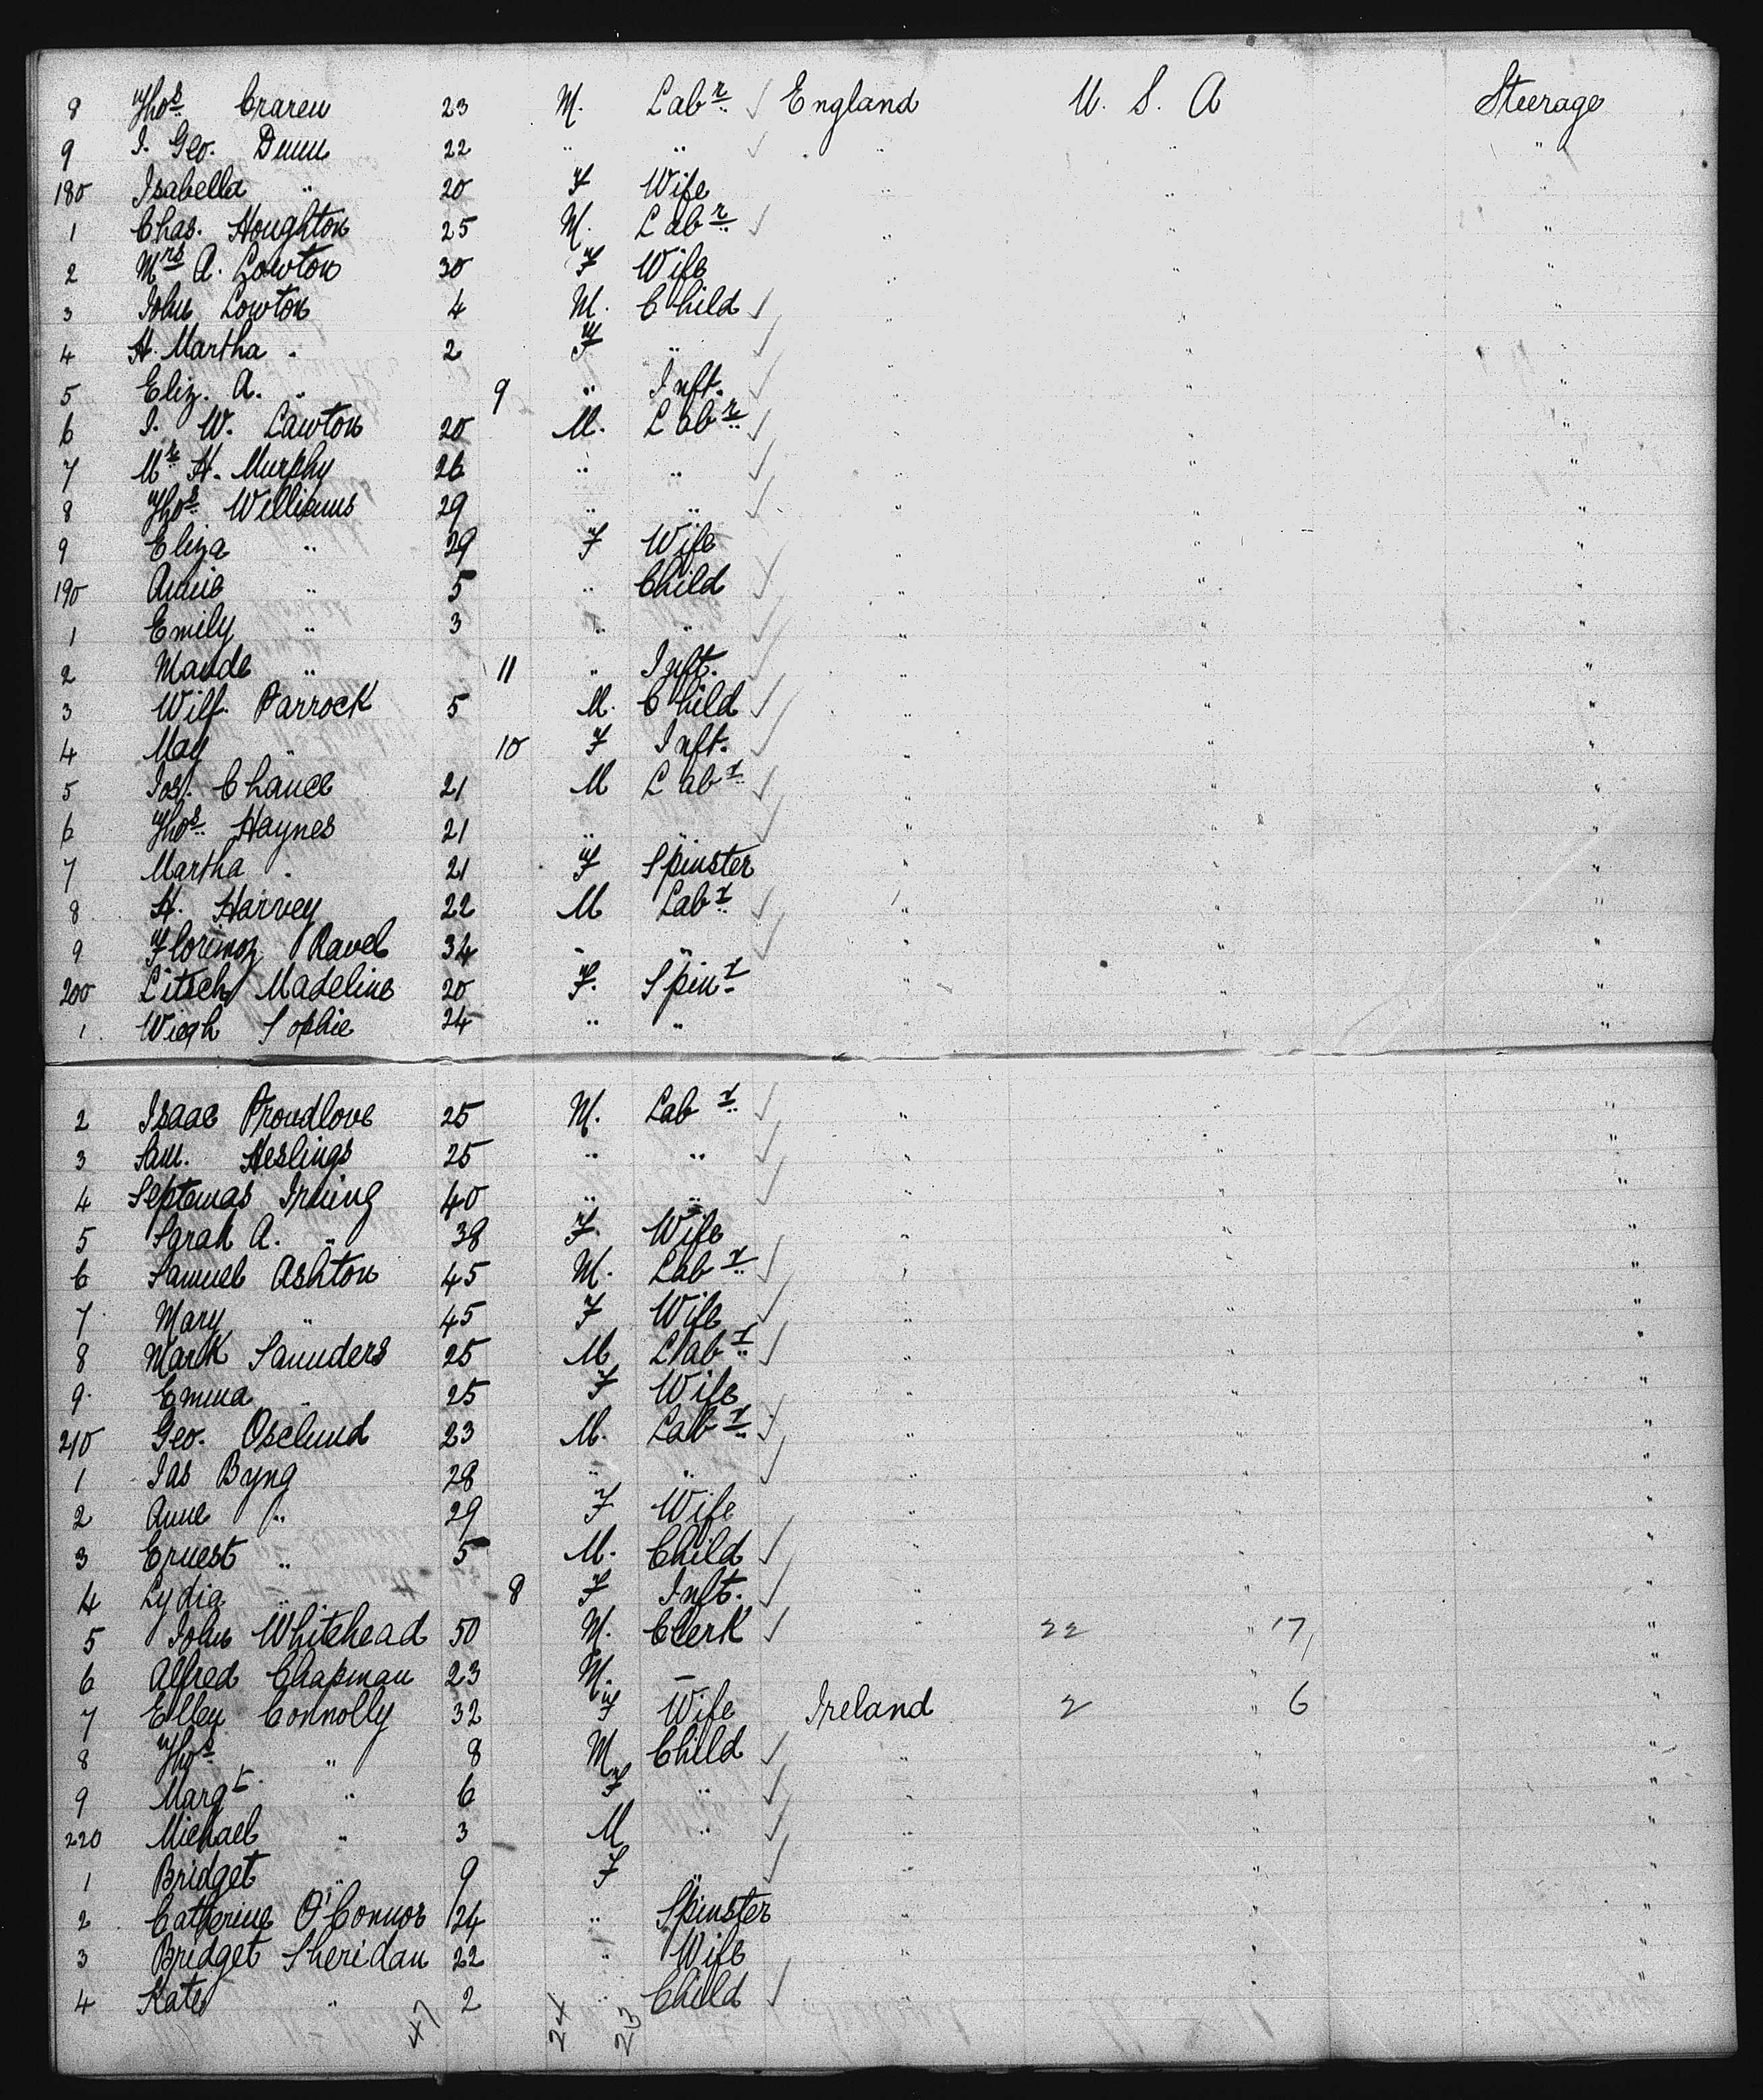 8 Thos Craren 23 M. Labr ✓ England U. S. A Steerage
9 J. Geo. Dunn 22 " " ✓ " " "
180 Isabella " 20 F Wife " " "
1 Chas. Houghton 25 M. Labr ✓ " " "
2 Mrs A. Lowton 30 F Wife " " "
3 John Lowton 4 M. Child ✓ " " "
4 H. Martha " 2 F " ✓ " "
5 Eliz. A. " 9 " Inft. ✓ " "
6 J. W. Lawton 20 M. Labr ✓ " "
7 Mr H. Murphy 26 " " ✓ " " "
8 Thos Williams 29 " " ✓ " " "
9 Eliza " 29 F Wife " " "
190 Annie " 5 " Child ✓ " " "
1 Emily " 3 " " ✓ " " "
2 Maude " 11 " Inft. ✓ " " "
3 Wilf. Parrock 5 M. Child ✓ " " "
4 May " 10 F Inft. ✓ " " "
5 Jos. Chance 21 M Labr ✓ " " "
6 Thos Haynes 21 " " ✓ " " "
7 Martha " 21 F Spinster " " "
8 H. Harvey 22 M Labr ✓ " " "
9 Florimoz Ravel 34 " " ✓ " " "
200 Litsch Madeline 20 F. Spinr " " "
1 Wiegh Sophie 24 " " " " "
2 Isaac Proudlove 25 M. Labr ✓ " " "
3 Sam. Heslings 25 " " ✓ " " "
4 Septemas Irving 40 " " ✓ " " "
5 Sarah A. " 38 F. Wife " " "
6 Samuel Ashton 45 M. Labr ✓ " " "
7 Mary " 45 F Wife ✓ " " "
8 Mark Saunders 25 M Labr ✓ " " "
9 Emma " 25 F Wife " " "
210 Geo. Oselund 23 M. Labr ✓ " " "
1 Jas Byng 28 " " ✓ " " "
2 Anne " 29 F Wife " " "
3 Ernest " 5 M. Child ✓ " " "
4 Lydia " 8 F Inft. ✓ " " "
5 John Whitehead 50 M. Clerk ✓ " 22 " 17 "
6 Alfred Chapman 23 M. — " "
7 Ellen Connolly 32 F Wife Ireland 2 " 6 "
8 Thos " 8 M Child ✓ " " "
9 Margt " 6 F " ✓ " " "
220 Michael " 3 M " ✓ " " "
1 Bridget " 9 F " ✓ " " "
2 Catherine O'Connor 24 " Spinster " " "
3 Bridget Sheridan 22 " Wife " " "
4 Kate " 2 " Child ✓ " " "
47 24 23